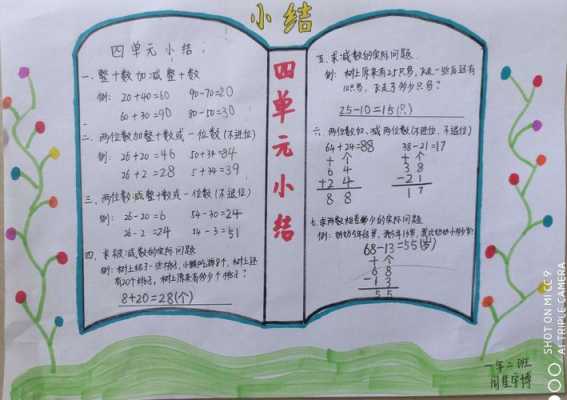 小结
四单元小结
四单元小结
一、整十数加减整十数
例: 20+40=60 90-70=20
60+30=90 80-50=30
二、两位数加整十数或一位数(不进位)
例: 26+20=46 50+34=84
26+2=28 5+34=39
三、两位数减整十数或一位数(不退位)
例: 26-20=6 54-30=24
26-2=24 54-3=51
四、求被减数的实际问题
例: 树上结了一些桃子, 8个, 树上还
有20个桃子, 树上原来有多少个桃子?
8+20=28(个)
五、求减数的实际问题
例: 树上原来有25只鸟, 飞走一些后还有
10只鸟, 飞走了多少只鸟?
25-10=15(只)
六、两位数加、减两位数(不进位、不退位)
64+24=88 38-21=17
十个 十个
6 4 3 8
+2 4 -2 1
8 8 1 7
七、求两数相差多少的实际问题
68-13=55(岁)
十个
6 8
-1 3
5 5
一年二班
SHOT ON MI CC 9
AI TRIPLE CAMERA